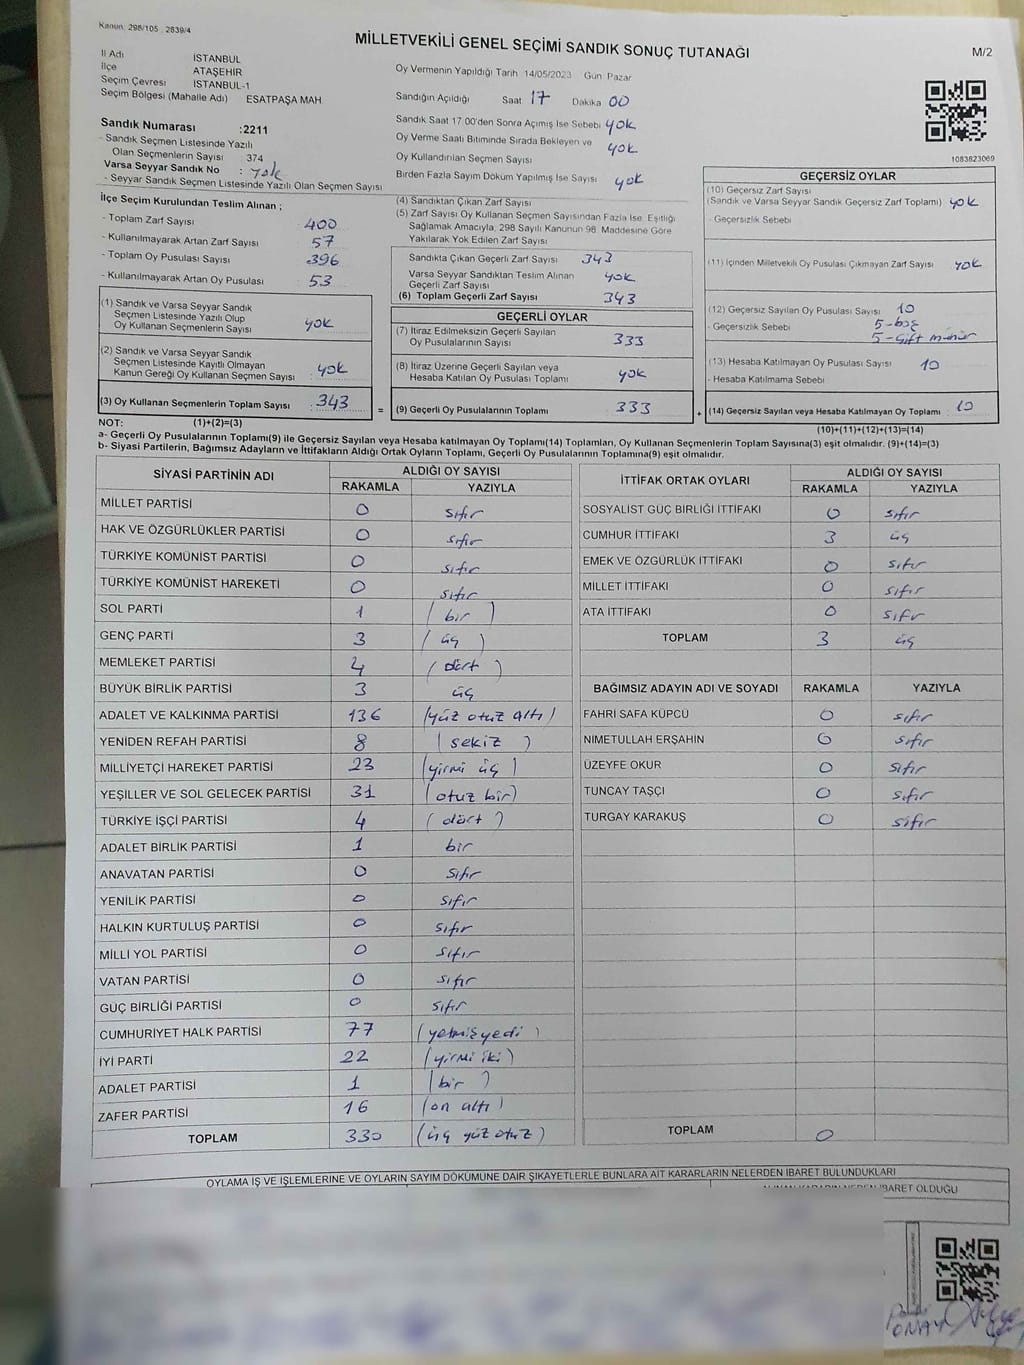 Kanun: 298/105 , 2839/4
MİLLETVEKİLİ GENEL SEÇİMİ SANDIK SONUÇ TUTANAĞI
M/2
İl Adı İSTANBUL
İlçe ATAŞEHİR
Seçim Çevresi İSTANBUL-1
Seçim Bölgesi (Mahalle Adı) ESATPAŞA MAH.
Oy Vermenin Yapıldığı Tarih 14/05/2023 Gün Pazar
Sandığın Açıldığı Saat 17 Dakika 00
Sandık Saat 17.00'den Sonra Açımış İse Sebebi yok
Oy Verme Saati Bitiminde Sırada Bekleyen ve
Oy Kullandırılan Seçmen Sayısı yok
Birden Fazla Sayım Döküm Yapılmış İse Sayısı yok
1083823069
Sandık Numarası :2211
- Sandık Seçmen Listesinde Yazılı
Olan Seçmenlerin Sayısı : 374
Varsa Seyyar Sandık No : yok
- Seyyar Sandık Seçmen Listesinde Yazılı Olan Seçmen Sayısı
İlçe Seçim Kurulundan Teslim Alınan ;
- Toplam Zarf Sayısı : 400
- Kullanılmayarak Artan Zarf Sayısı : 57
- Toplam Oy Pusulası Sayısı : 396
- Kullanılmayarak Artan Oy Pusulası : 53
(1) Sandık ve Varsa Seyyar Sandık
Seçmen Listesinde Yazılı Olup
Oy Kullanan Seçmenlerin Sayısı : yok
(2) Sandık ve Varsa Seyyar Sandık
Seçmen Listesinde Kayıtlı Olmayan
Kanun Gereği Oy Kullanan Seçmen Sayısı : yok
(3) Oy Kullanan Seçmenlerin Toplam Sayısı : 343
(4) Sandıktan Çıkan Zarf Sayısı
(5) Zarf Sayısı Oy Kullanan Seçmen Sayısından Fazla İse, Eşitliği
Sağlamak Amacıyla, 298 Sayılı Kanunun 98. Maddesine Göre
Yakılarak Yok Edilen Zarf Sayısı
Sandıkta Çıkan Geçerli Zarf Sayısı : 343
Varsa Seyyar Sandıktan Teslim Alınan
Geçerli Zarf Sayısı : yok
(6) Toplam Geçerli Zarf Sayısı : 343
GEÇERLİ OYLAR
(7) İtiraz Edilmeksizin Geçerli Sayılan
Oy Pusulalarının Sayısı : 333
(8) İtiraz Üzerine Geçerli Sayılan veya
Hesaba Katılan Oy Pusulası Toplamı : yok
= (9) Geçerli Oy Pusulalarının Toplamı : 333
GEÇERSİZ OYLAR
(10) Geçersiz Zarf Sayısı
(Sandık ve Varsa Seyyar Sandık Geçersiz Zarf Toplamı) yok
- Geçersizlik Sebebi
(11) İçinden Milletvekili Oy Pusulası Çıkmayan Zarf Sayısı yok
(12) Geçersiz Sayılan Oy Pusulası Sayısı : 10
- Geçersizlik Sebebi : 5-boş
5-çift mühür
(13) Hesaba Katılmayan Oy Pusulası Sayısı : 10
- Hesaba Katılmama Sebebi
+ (14) Geçersiz Sayılan veya Hesaba Katılmayan Oy Toplamı : 10
NOT: (1)+(2)=(3)
(10)+(11)+(12)+(13)=(14)
a- Geçerli Oy Pusulaları Toplamı(9) ile Geçersiz Sayılan veya Hesaba katılmayan Oy Toplamı(14) Toplamları, Oy Kullanan Seçmenlerin Toplam Sayısına(3) eşit olmalıdır. (9)+(14)=(3)
b- Siyasi Partilerin, Bağımsız Adayların ve İttifakların Aldığı Ortak Oyların Toplamı, Geçerli Oy Pusulalarının Toplamına(9) eşit olmalıdır.
SİYASİ PARTİNİN ADI ALDIĞI OY SAYISI
RAKAMLA YAZIYLA
MİLLET PARTİSİ 0 sıfır
HAK VE ÖZGÜRLÜKLER PARTİSİ 0 sıfır
TÜRKİYE KOMÜNİST PARTİSİ 0 sıfır
TÜRKİYE KOMÜNİST HAREKETİ 0 sıfır
SOL PARTİ 1 (bir)
GENÇ PARTİ 3 (üç)
MEMLEKET PARTİSİ 4 (dört)
BÜYÜK BİRLİK PARTİSİ 3 üç
ADALET VE KALKINMA PARTİSİ 136 (yüz otuz altı)
YENİDEN REFAH PARTİSİ 8 (sekiz)
MİLLİYETÇİ HAREKET PARTİSİ 23 (yirmi üç)
YEŞİLLER VE SOL GELECEK PARTİSİ 31 (otuz bir)
TÜRKİYE İŞÇİ PARTİSİ 4 (dört)
ADALET BİRLİK PARTİSİ 1 bir
ANAVATAN PARTİSİ 0 sıfır
YENİLİK PARTİSİ 0 sıfır
HALKIN KURTULUŞ PARTİSİ 0 sıfır
MİLLİ YOL PARTİSİ 0 sıfır
VATAN PARTİSİ 0 sıfır
GÜÇ BİRLİĞİ PARTİSİ 0 sıfır
CUMHURİYET HALK PARTİSİ 77 (yetmişyedi)
İYİ PARTİ 22 (yirmi iki)
ADALET PARTİSİ 1 (bir)
ZAFER PARTİSİ 16 (on altı)
TOPLAM 330 (üç yüz otuz)
İTTİFAK ORTAK OYLARI ALDIĞI OY SAYISI
RAKAMLA YAZIYLA
SOSYALİST GÜÇ BİRLİĞİ İTTİFAKI 0 sıfır
CUMHUR İTTİFAKI 3 üç
EMEK VE ÖZGÜRLÜK İTTİFAKI 0 sıfır
MİLLET İTTİFAKI 0 sıfır
ATA İTTİFAKI 0 sıfır
TOPLAM 3 üç
BAĞIMSIZ ADAYIN ADI VE SOYADI RAKAMLA YAZIYLA
FAHRİ SAFA KÜPCÜ 0 sıfır
NİMETULLAH ERŞAHİN 0 sıfır
ÜZEYFE OKUR 0 sıfır
TUNCAY TAŞÇI 0 sıfır
TURGAY KARAKUŞ 0 sıfır
TOPLAM 0
OYLAMA İŞ VE İŞLEMLERİNE VE OYLARIN SAYIM DÖKÜMÜNE DAİR ŞİKAYETLERLE BUNLARA AİT KARARLARIN NELERDEN İBARET BULUNDUKLARI
İBARET OLDUĞU